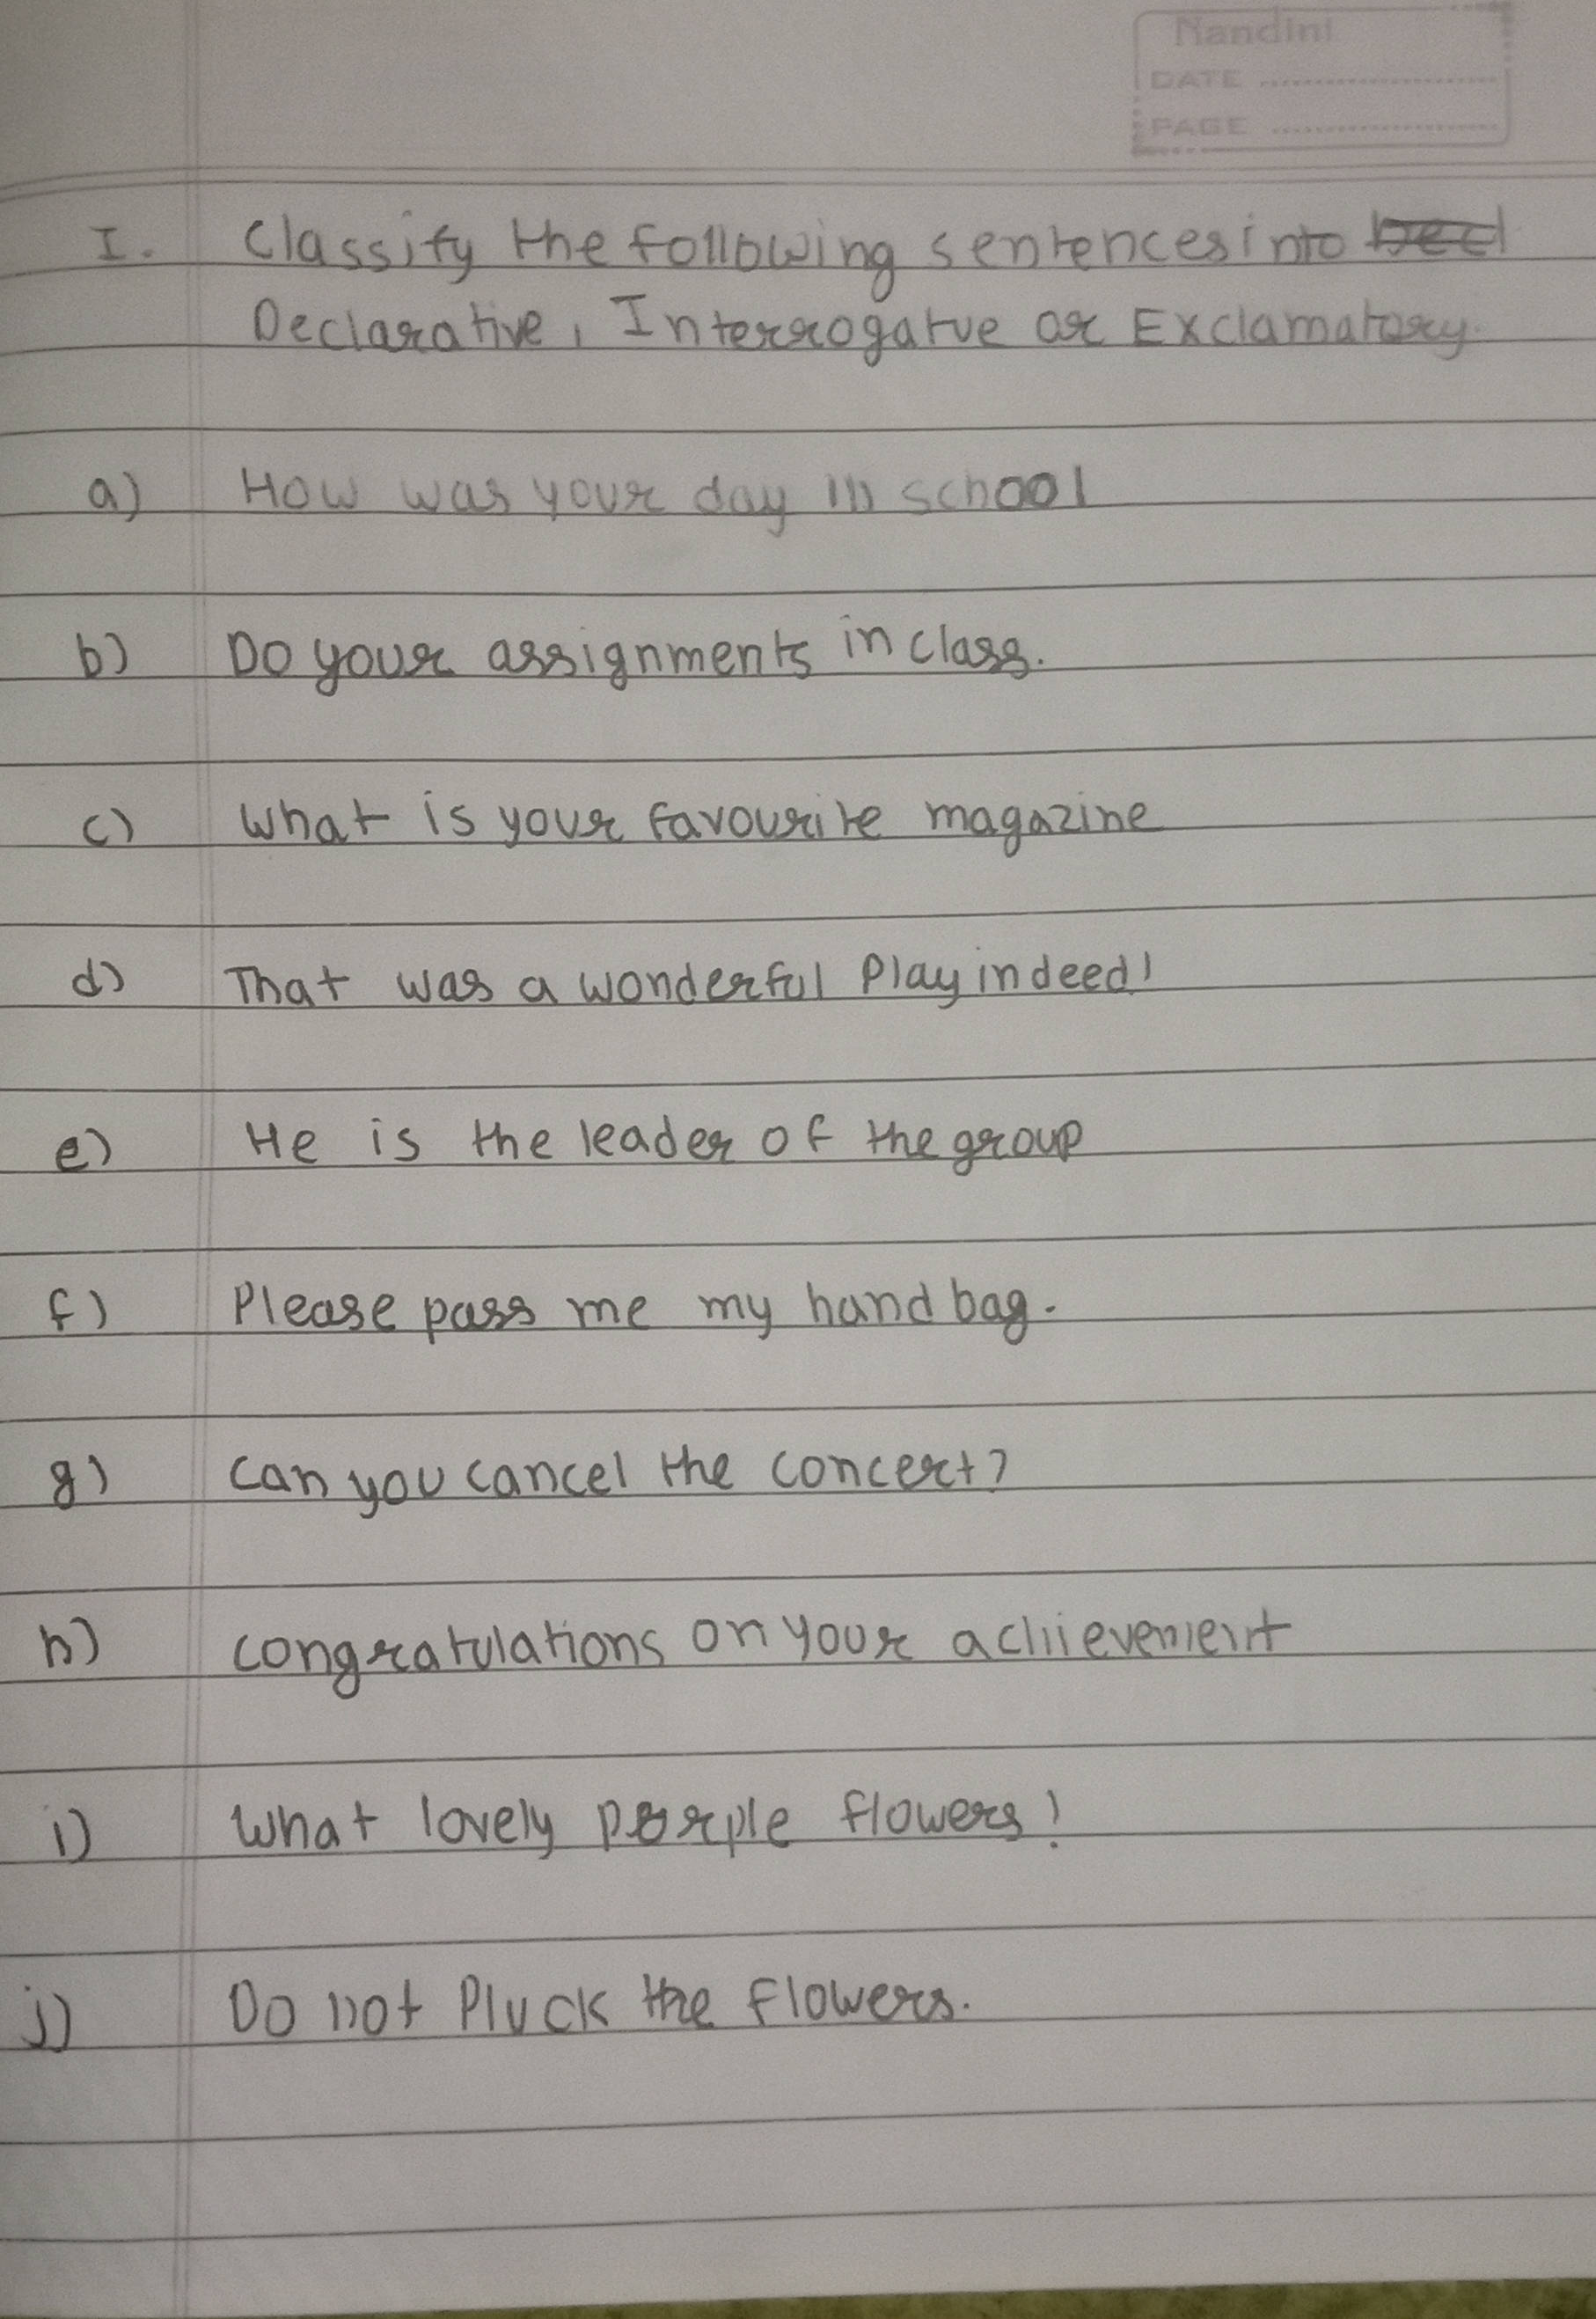 Nandini
DATE
PAGE
I. Classify the following sentences into
Declarative, Interrogatve or Exclamatory.
a) How was your day in school
b) Do your assignments in class.
c) What is your favourite magazine
d) That was a wonderful Play indeed!
e) He is the leader of the group
f) Please pass me my hand bag.
g) Can you cancel the concert?
h) congratulations on your achievement
i) What lovely purple flowers!
j) Do not Pluck the flowers.